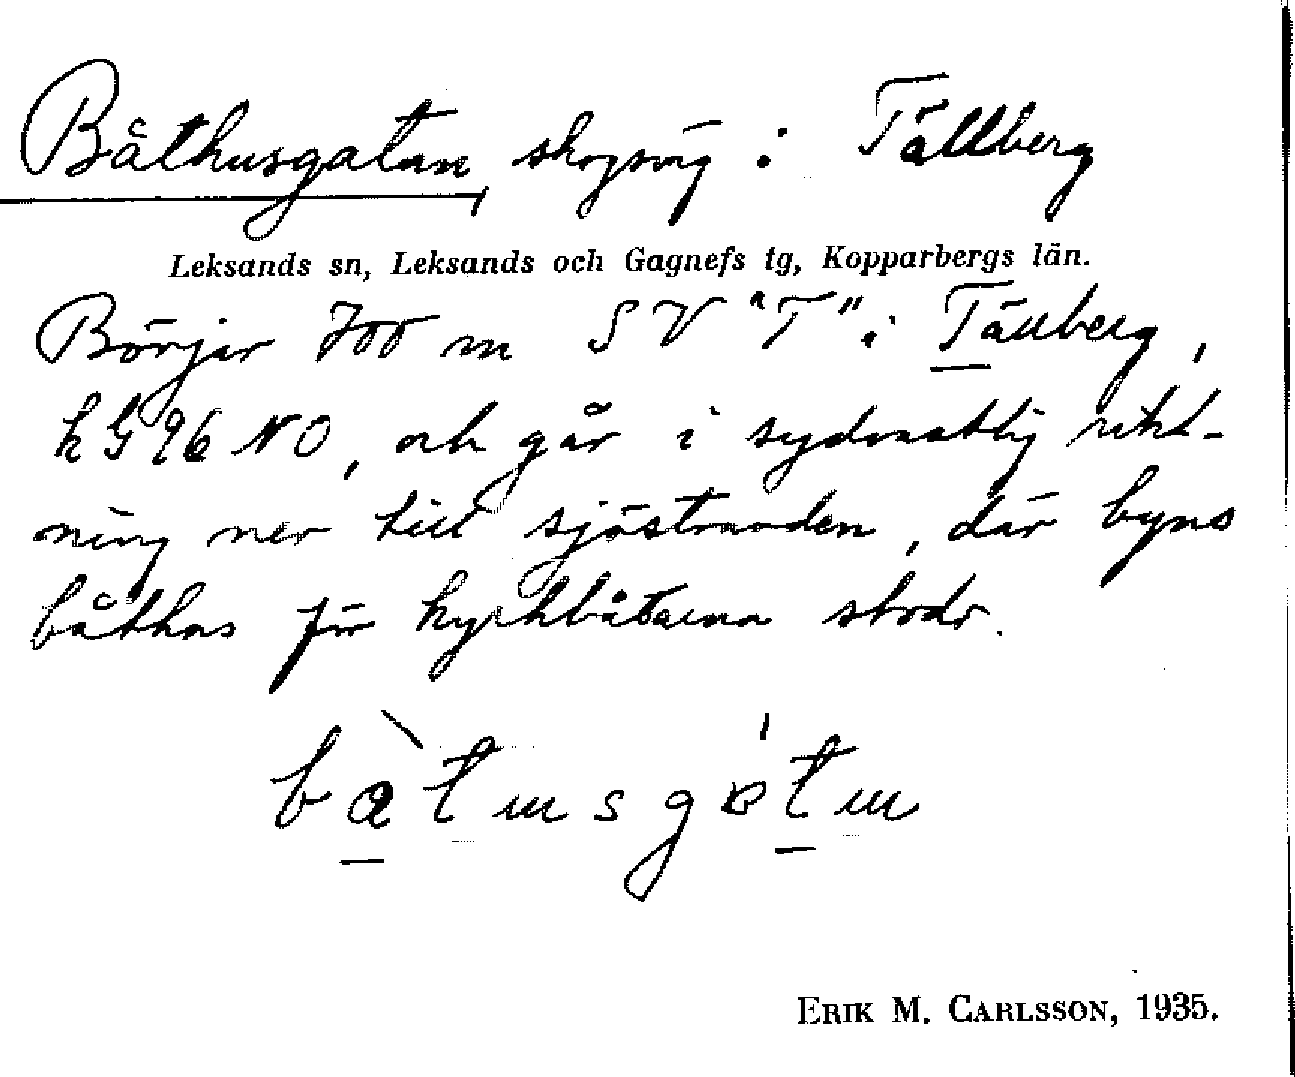 Båthusgatan, skogsväg i Tällberg
Leksands sn, Leksands och Gagnefs tg, Kopparbergs län.
Börjar 700 m SV "T" i Tällberg,
k G 96 NO, och går i sydvästlig rikt-
ning ner till sjöstranden, där byns
båthus för kyrkbåtarna stodo.
ERIK M. CARLSSON, 1935.